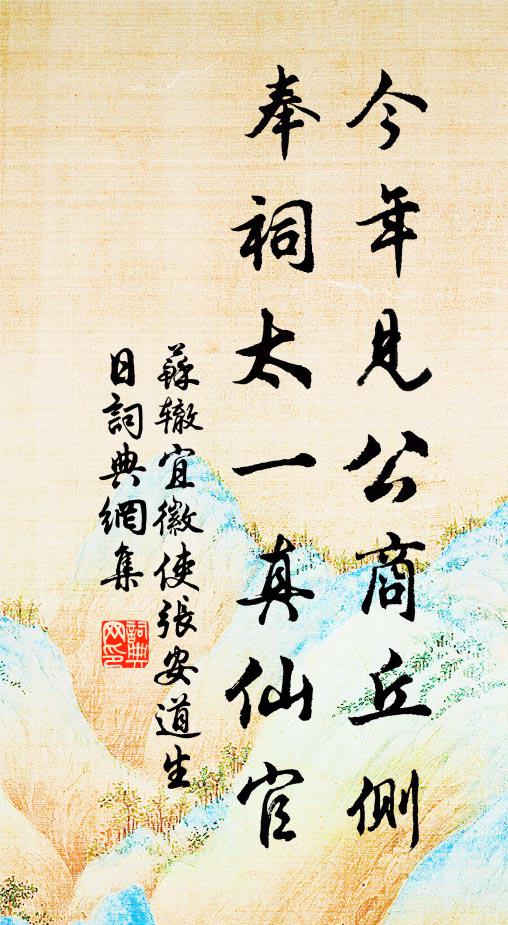 今年見公商丘側
奉祠太一真仙官
蘇辙宣徽使張安道生
日詞典網集
詞典网印